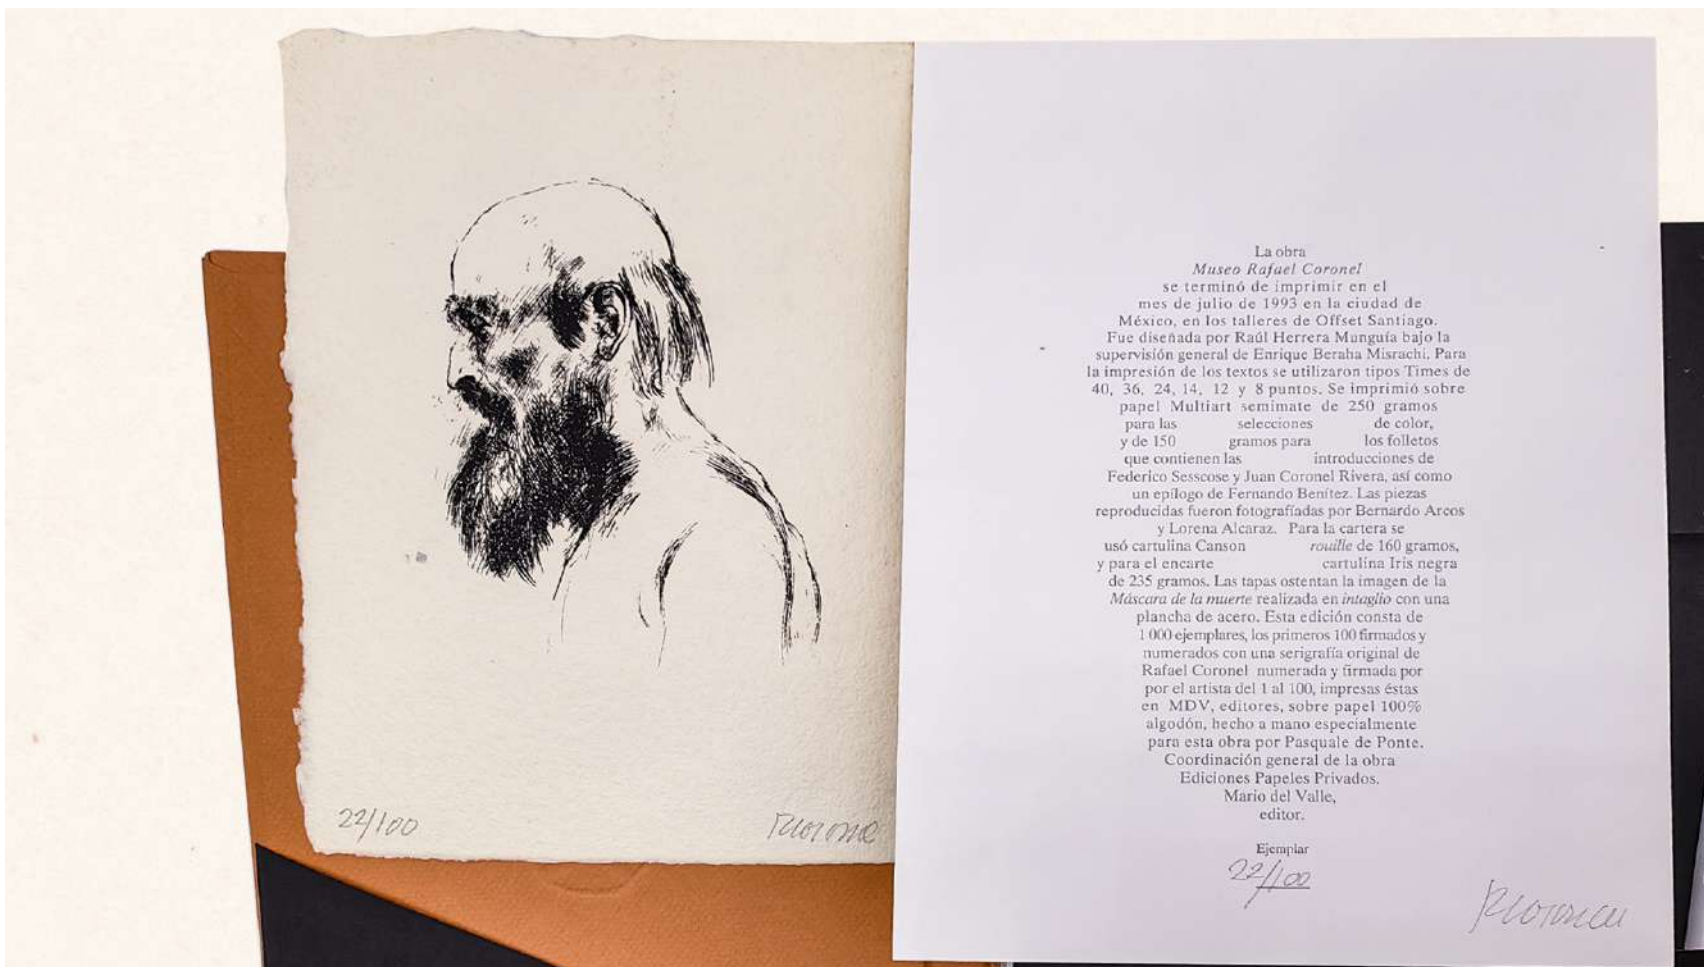 22/100
RCoronel
La obra
Museo Rafael Coronel
se terminó de imprimir en el
mes de julio de 1993 en la ciudad de
México, en los talleres de Offset Santiago.
Fue diseñada por Raúl Herrera Munguía bajo la
supervisión general de Enrique Beraha Misrachi. Para
la impresión de los textos se utilizaron tipos Times de
40, 36, 24, 14, 12 y 8 puntos. Se imprimió sobre
papel Multiart semimate de 250 gramos
para las selecciones de color,
y de 150 gramos para los folletos
que contienen las introducciones de
Federico Sesscose y Juan Coronel Rivera, así como
un epílogo de Fernando Benítez. Las piezas
reproducidas fueron fotografíadas por Bernardo Arcos
y Lorena Alcaraz. Para la cartera se
usó cartulina Canson rouille de 160 gramos,
y para el encarte cartulina Iris negra
de 235 gramos. Las tapas ostentan la imagen de la
Máscara de la muerte realizada en intaglio con una
plancha de acero. Esta edición consta de
1 000 ejemplares, los primeros 100 firmados y
numerados con una serigrafía original de
Rafael Coronel numerada y firmada por
por el artista del 1 al 100, impresas éstas
en MDV, editores, sobre papel 100%
algodón, hecho a mano especialmente
para esta obra por Pasquale de Ponte.
Coordinación general de la obra
Ediciones Papeles Privados.
Mario del Valle,
editor.
Ejemplar
22/100
RCoronel